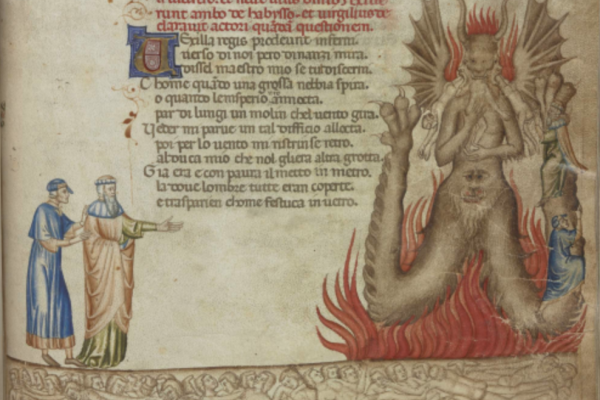 runt ambo de habysso. et virgilius de
claravit actori quādā questionem.
Vexilla regis prodeunt inferni.
verso di noi pero dinanzi mira.
disse l maestro mio se tu discerni.
Chome quādo una grossa nebbia spira.
o quanto lemisperio annocta.
par di lungi un molin chel vento gira.
Veder mi parve un tal dificio allocta.
poi per lo vento mi ristrinse retro.
al duca mio che nol gliera altra grotta.
Gia era e con paura il metto in metro.
la dove lombre tutte eran coperte.
e trasparien chome festuca in vetro.